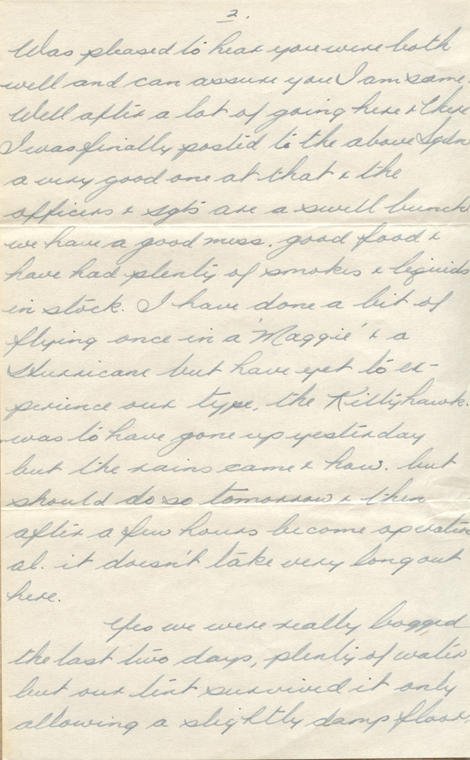 2.
Was pleased to hear you were both
well and can assure you I am same.
Well after a lot of going here & there
I was finally posted to the above Sqdn
a very good one at that & the
officers & sgts are a swell bunch
we have a good mess. good food &
have had plenty of smokes & liquids
in stock. I have done a bit of
flying once in a 'Maggie' & a
Hurricane but have yet to ex-
perience our type, the Kittyhawk.
was to have gone up yesterday
but the rains came & how. but
should do so tomorrow & then
after a few hours become operation
al. it doesn't take very long out
here.
Yes we were really bogged
the last two days, plenty of water
but our tent survived it only
allowing a slightly damp floor.